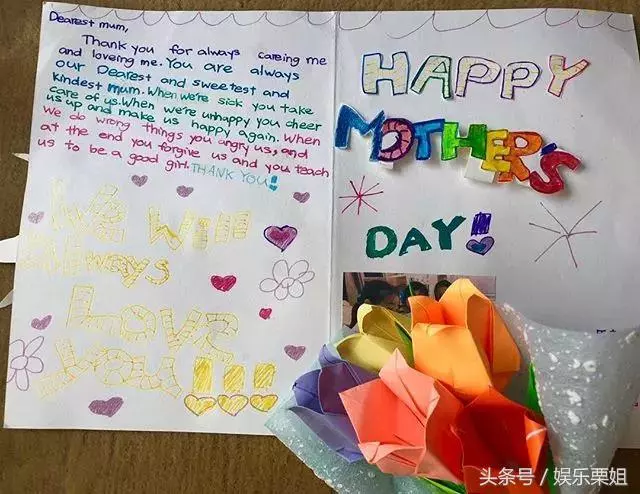 Dearest mum,
Thank you for always careing me
and loveing me. You are always
our Dearest and sweetest and
kindest mum. When we're sick you take
care of us. When we're unhappy you cheer
us up and make us happy again. When
we do wrong things you angry us, and
at the end you forgive us and you teach
us to be a good girl. THANK YOU!
We will
always
Love
you!!!
HAPPY
MOTHER'S
DAY!
头条号 / 娱乐栗姐